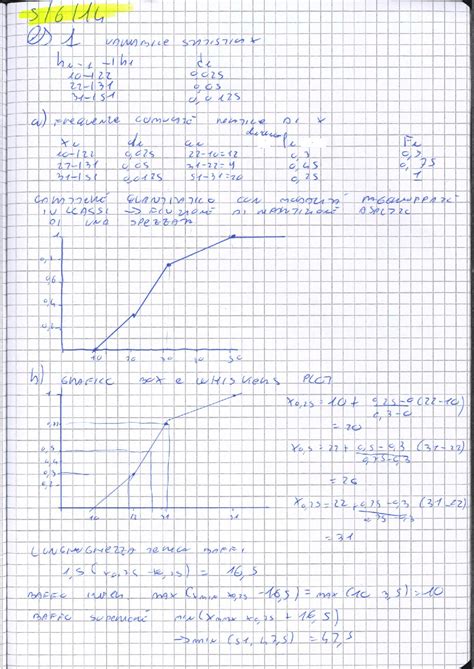 5/6/14
ES 1 VARIABILE STATISTICA X
hi-1 -| hi di
10-|22 0,025
22-|31 0,05
31-|51 0,0125
a) FREQUENZE CUMULATE RELATIVE DI X
xi di ai fi Fi
10-|22 0,025 22-10=12 0,3 0,3
22-|31 0,05 31-22=9 0,45 0,75
31-|51 0,0125 51-31=20 0,25 1
CARATTERE QUANTITATIVO CON MODALITÀ RAGGRUPPATE
IN CLASSI → FUNZIONE DI RIPARTIZIONE
DI UNA SPEZZATA
1
0,8
0,6
0,4
0,2
10 20 30 50
b) GRAFICO BOX E WHISKERS PLOT
x0,25 = 10 + 0,25-0 (22-10)
0,3-0
= 20
x0,5 = 22 + 0,5-0,3 (31-22)
0,75-0,3
= 26
x0,75 = 22 + 0,75-0,3 (31-22)
0,75-0,3
= 31
1
0,5
0,4
0,3
0,2
10 22 31 51
LUNGHEZZA TEORICA BAFFI
1,5 (x0,75 - x0,25) = 16,5
BAFFO INFER. max (xmin x0,25 - 16,5) = max (10 3,5) = 10
BAFFO SUPERIORE min (xmax x0,75 + 16,5)
→ min (51, 47,5) = 47,5